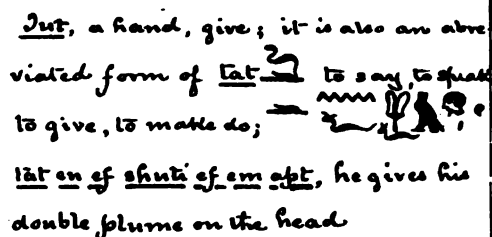 Tut, a hand, give; it is also an abre
viated form of tat to say, to speak
to give, to make do;
tat en ef shuti ef em apt, he gives his
double plume on the head